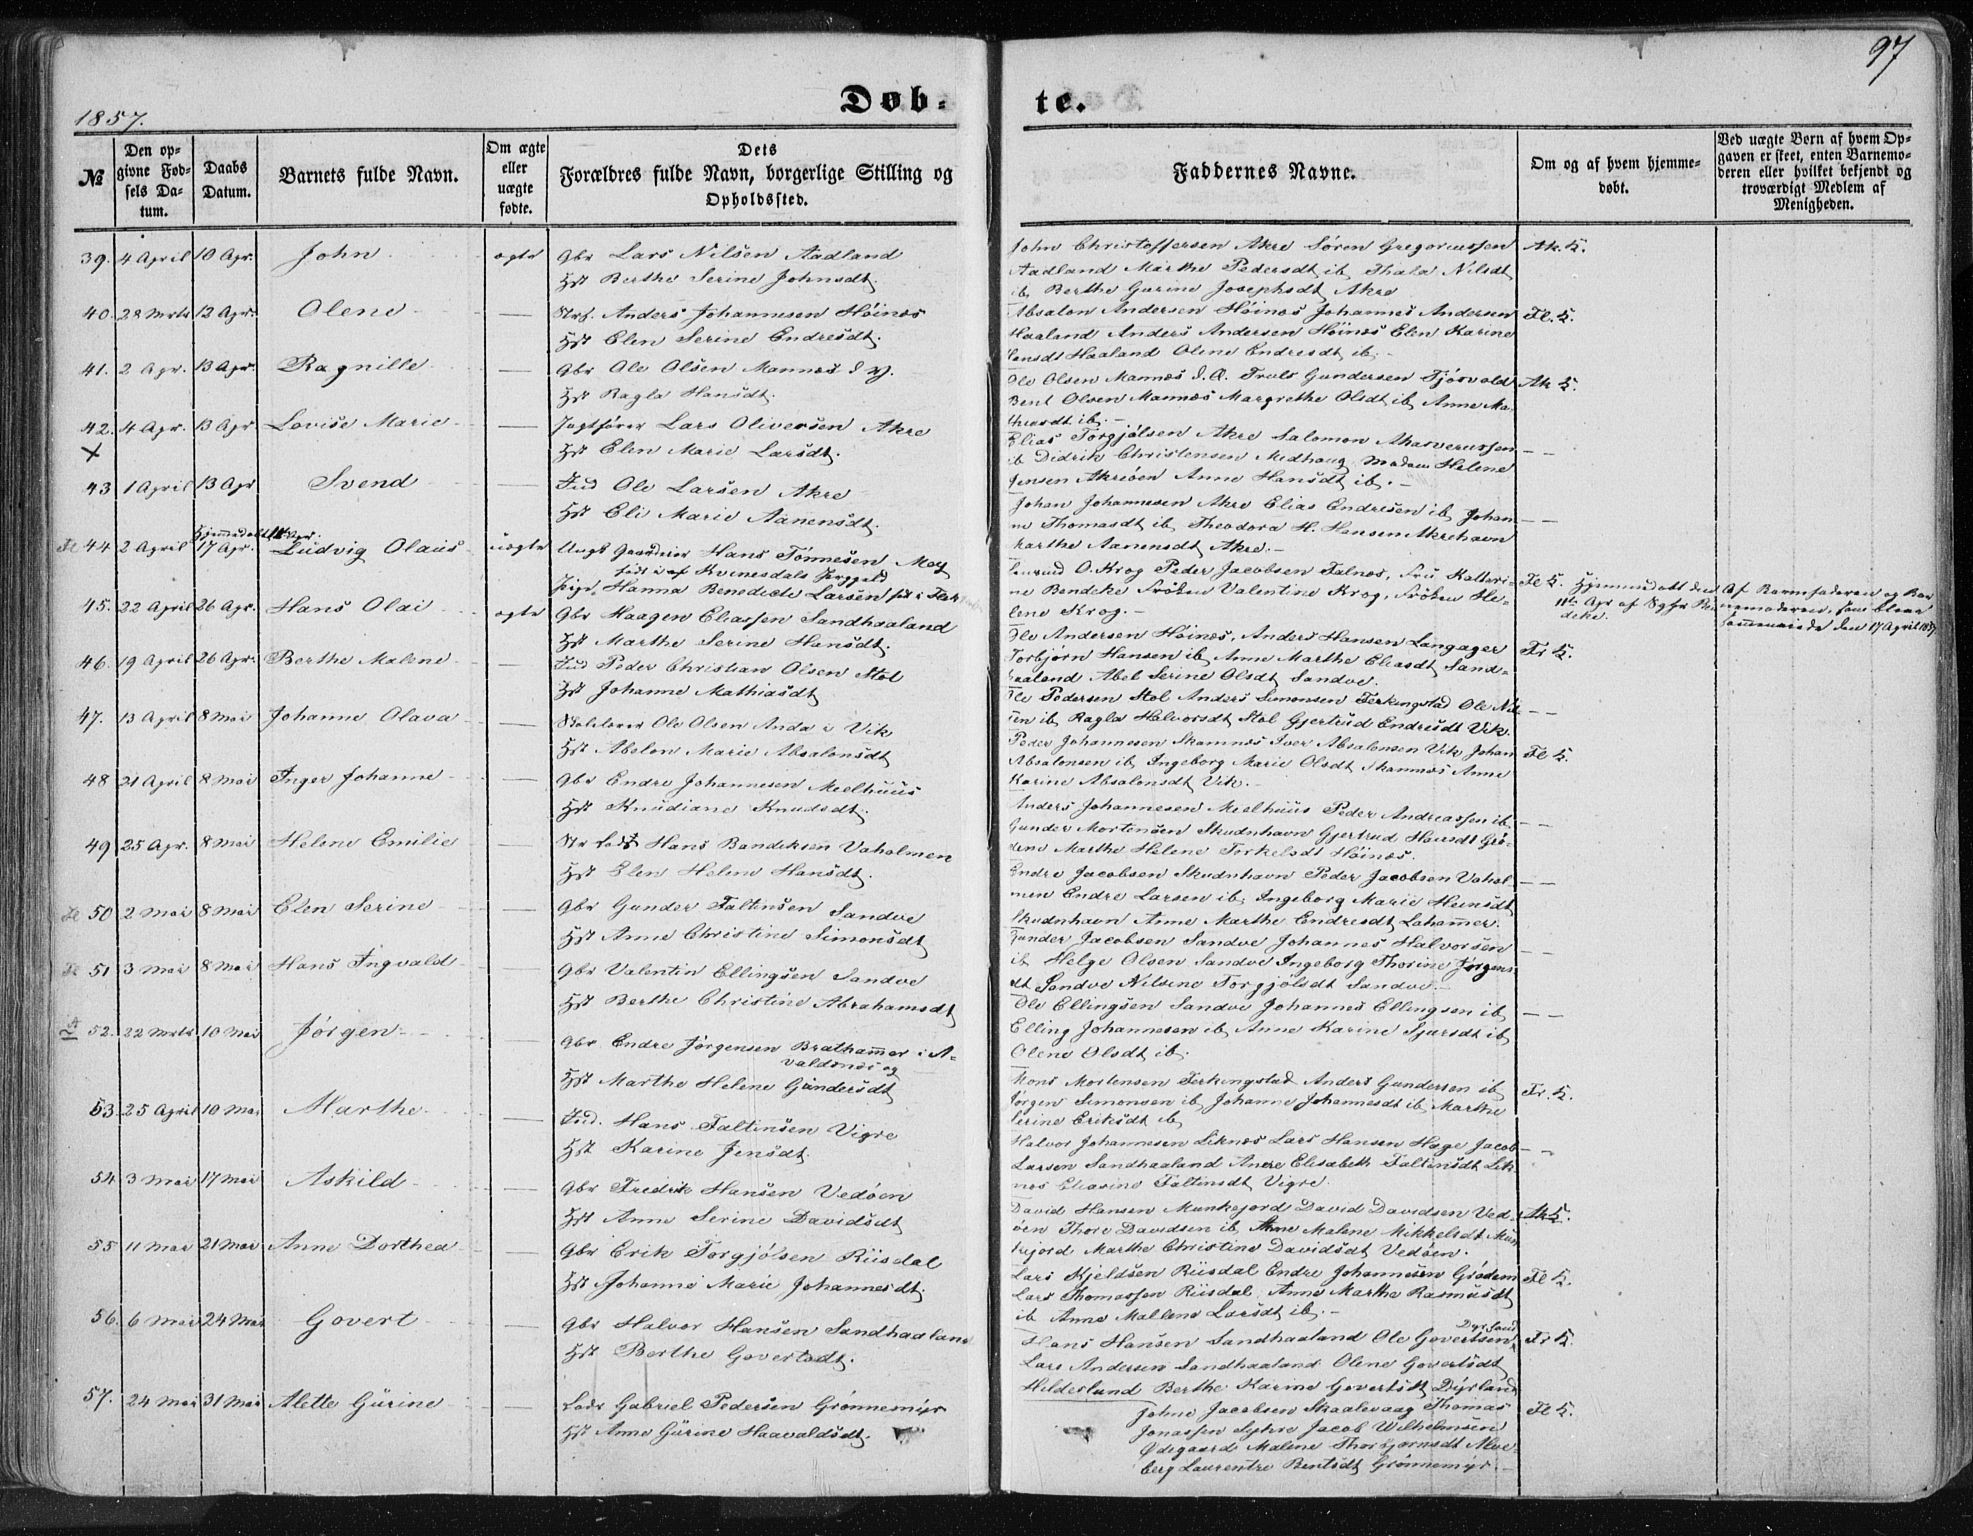 97
1857.
Døb-
te.
№
Den op-
givne Fød-
sels Da-
tum.
Daabs
Datum.
Barnets fulde Navn.
Om ægte
eller
uægte
fødte.
Dets
Forældres fulde Navn, borgerlige Stilling og
Opholdssted.
Faddernes Navne.
Om og af hvem hjemme-
døbt.
Ved uægte Børn af hvem Op-
gaven er skeet, enten Barnemo-
deren eller hvilket bekjendt og
troværdigt Medlem af
Menigheden.
39. 4 April 10 Apr. John ægte Gbr Lars Nilsen Aadland
Hst Berthe Serine Johnsdt.
John Christoffersen Akre Søren Gregoriussen Ak. K.
Aadland Marthe Pedersdt ib Thala Nilsdt
ib Berthe Gurine Josephsdt Akre
40. 28 Mrts 12 Apr. Olene — Anders Johannesen Høinæs
Hst Elen Serine Endresdt.
Absalon Andersen Høinæs Johannes Andersen Fl. K.
Haaland Anders Andersen Høinæs Elen Karine
Haaland Olene Endresdt ib. -
41. 2 Apr. 13 Apr. Ragnille — Gbr Ole Olsen Mannes d. y.
Hst Ragla Hansdt.
Ole Olsen Mannes d. Æ. Truls Gundersen Tjøsvold Ak K.
Bent Olsen Mannes Margrethe Olsdt ib Anne Ma-
thiasdt ib. -
42. 4 Apr. 13 Apr Lovise Marie — Jagtfører Lars Oliversen Akre
X
Hst Elen Marie Larsdt.
Elias Torgjølsen Akre Salomon Ahasverussen — —
ib Didrik Christensen Medhoug, Madam Helene
Jensen Akreøen Anne Hansdt ib. -
43 1 April 13 Apr Svend — Ind Ole Larsen Akre
Hst Eli Marie Aanensdt.
Johan Johannesen Akre Elias Endresen ib Johan- — —
ne Thomasdt ib Theodora H. Hansen Akrehavn
Marthe Aanensdt Akre. -
Hjemmedøbt 11 Apr.
44 2 April 17 Apr. Ludvig Olaus uægte Ungk Hans Tønnesen Moy
født i af Kvinesdals Præggeld
Pige Hanna Benedicte Larsen
O. Krog Peder Jacobsen Falnæs, Fru Kathari- Fl K. Hjemmedøbt den Af Barnefaderen og Bar-
ne Bendeke Frøken Valentine Krog, Frøken He- 11te Apr af Sgpr Ben- nemoderen, som bleve
lene Krog. - deke. den 17 April 1857
45. 22 April 26 Apr. Hans Olai ægte Gbr Haagen Eliassen Sandhaaland
Hst Marthe Serine Hansdt.
Ole Andersen Høinæs, Anders Hansen Langager Fr K.
Torbjørn Hansen ib Anne Marthe Eliasdt Sand-
haaland Abel Serine Olsdt Sandve.
46. 19 April 26 Apr. Berthe Malene — Ind Peder Christian Olsen Stol
Hst Johanne Mathiasdt
Ole Pedersen Stol Anders Simonsen Ferkingstad Ole Nil- — —
sen ib Ragla Halvorsdt Stol Gjertrud Endresdt Vik.
47. 13 April 8 Mai Johanne Olava — Ole Olsen Anda i Vik
Hst Abelon Marie Absalonsdt
Peder Johannesen Skamnæs Iver Absalonsen Vik Johan Fl K.
Absalonsen ib Ingeborg Marie Olsdt Skamnæs Anne
Karine Absalonsdt Vik. -
48 21 April 8 Mai Inger Johanne — Gbr Endre Johannesen Meelhuus
Hst Knudiane Knudsdt.
Anders Johannesen Meelhuus Peder Andreassen ib — —
Gunder Mortensen Skudnhavn Gjertrud Hansdt Grø-
dem Marthe Helene Torkelsdt Høinæs.
49 25 Apr. 8 Mai Helene Emilie — Hans Bendiksen Vaholmen
Hst Elen Helene Hansdt.
Endre Jacobsen Skudnhavn Peder Jacobsen Vahol- — —
men Endre Larsen ib Ingeborg Marie
Skudnhavn Anne Marthe Endresdt Lahammer.
50 2 Mai 8 Mai Elen Serine — Gbr Gunder Faltinsen Sandve
Hst Anne Christine Simonsdt
Gunder Jacobsen Sandve Johannes Halvorsen — —
ib Helge Olsen Sandve Ingeborg Thorine Jørgens-
dt Sandve Nilsine Torgjølsdt Sandve. -
51 3 Mai 8 Mai Hans Ingvald — Gbr Valentin Ellingsen Sandve
Hst Berthe Christine Abrahamsdt
Ole Ellingsen Sandve Johannes Ellingsen ib — —
Elling Johannesen ib Anne Karine Sjursdt ib
Olene Olsdt ib.
52. 22 Mrts 10 Mai Jørgen — Gbr Endre Jørgensen Brathammer i A-
valdsnes og
Hst Marthe Helene Gundersdt
Mons Mortensen Ferkingstad Anders Gundersen ib Fr. K.
Jørgen Simonsen ib Johanne Johannesdt ib Marthe
Serine Eriksdt ib
53. 25 April 10 Mai Marthe — Ind. Hans Faltinsen Vigre
Hst Karine Jensdt.
Halvor Johannesen Liknæs Lars Hansen Hæge Jacob — —
Larsen Sandhaaland Anne Elisabeth Faltinsdt Lik-
næs Eliasine Faltinsdt Vigre.
54 3 Mai 17 Mai Askild — Gbr Fredrik Hansen Vedøen
Hst Anne Serine Davidsdt
David Hansen Munkejord David Davidsen Ved- Ak K.
øen Thore Davidsen ib Anne Malene Mikkelsdt Mun-
kejord Marthe Christine Davidsdt Vedøen.
55 11 Mai 21 Mai Anne Dorthea — Gbr Erik Torgjølsen Riisdal
Hst Johanne Marie Johannesdt.
Lars Kjeldsen Riisdal Endre Johannesen Grødem Fl K.
Lars Thomassen Riisdal, Anne Marthe Rasmusdt
ib Anne Mallene Larsdt ib. -
56. 6 Mai 24 Mai Govert — Gbr Halvor Hansen Sandhaaland
Hst Berthe Govertsdt.
Dyrland
Hans Hansen Sandhaaland Ole Govertsen Fr K.
Lars Andersen Sandhaaland Olene Govertsdt
Hilderslund Berthe Karine Govertsdt Dyrland
57. 24 Mai 31 Mai Alette Gurine — Lods Gabriel Pedersen Grønnemyr
Hst Anne Gurine Haavaldsdt.
Johne Jacobsen Skaalevaag Thomas Fl K.
Jonassen Syhre Jacob Wilhelmsen
Ødegaard Malene Thorbjørnsdt
berg Laurentze Bentsdt Grønnemyr. -